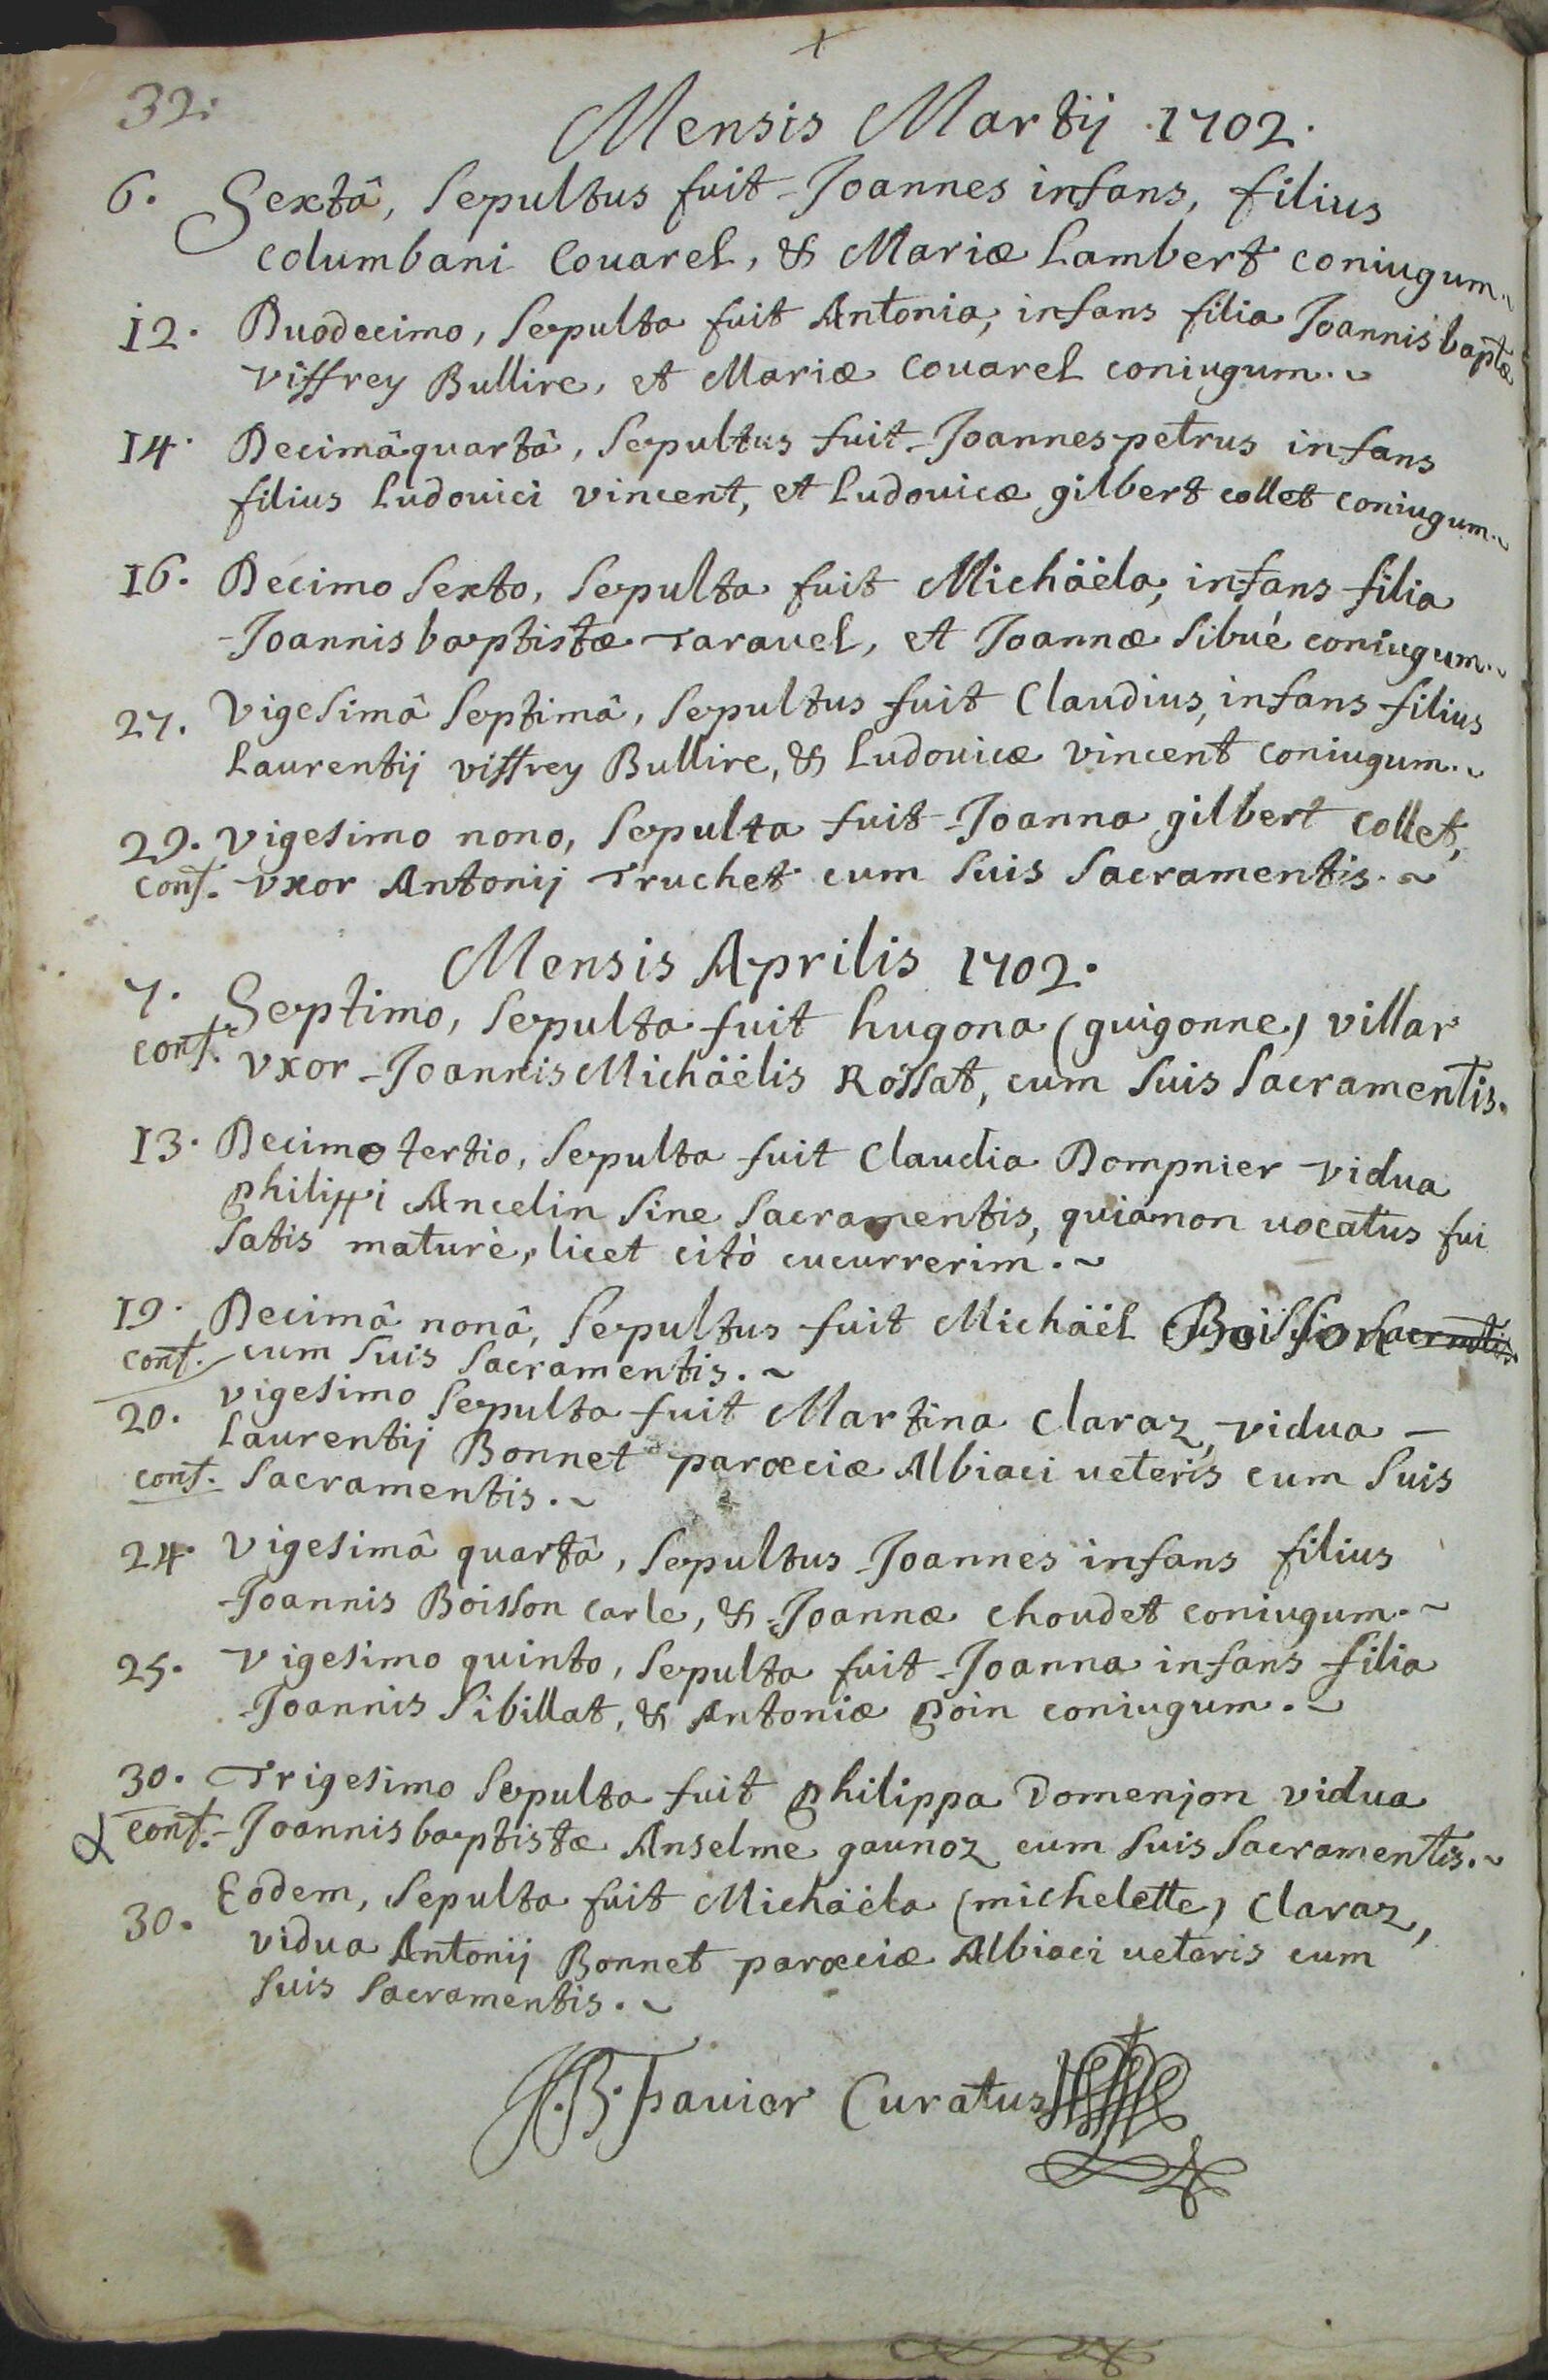 32.
Mensis Martij 1702.
6. Sextâ, Sepultus fuit Joannes infans, filius
columbani Couarel, & Mariæ Lambert coniugum.~
12. Duodecimo, Sepulta fuit Antonia, infans filia Joannisbaptæ
viffrey Bullire, et Mariæ Couarel coniugum.~
14. Decimâquartâ, Sepultus fuit Joannespetrus infans
filius Ludouici vincent, et Ludouicæ gilbert collet coniugum.~
16. Decimo Sexto, Sepulta fuit Michäéla, infans filia
Joannisbaptistæ Tarauel, et Joannæ Sibué coniugum.~
27. Vigesimâ Septimâ, Sepultus fuit Claudius, infans filius
Laurentij viffrey Bullire, & Ludouicæ vincent coniugum.~
29. Vigesimo nono, Sepulta fuit Joanna gilbert collet,
conf. vxor Antonij Truchet cum Suis Sacramentis.~
Mensis Aprilis 1702.
7. Septimo, Sepulta fuit hugona (guigonne) villar
conf. vxor Joannis Michäélis Rossat, cum Suis Sacramentis.
13. Decimo tertio, Sepulta fuit Claudia Dompnier vidua
Philippi Ancelin Sine Sacramentis, quia non uocatus fui
Satis maturè, licet citò cucurrerim.~
19. Decimâ nonâ, Sepultus fuit Michäél Boisson
conf. cum Suis Sacramentis.~
20. vigesimo Sepulta fuit Martina Claraz, vidua –
Laurentij Bonnet parœciæ Albiaci ueteris cum Suis
conf. Sacramentis.~
24. Vigesimâ quartâ, Sepultus Joannes infans filius
Joannis Boisson carle, & Joannæ choudet coniugum.~
25. Vigesimo quinto, Sepulta fuit Joanna infans filia
Joannis Sibillat, & Antoniæ Poin coniugum.~
30. Trigesimo Sepulta fuit Philippa Domenjon vidua
conf. Joannisbaptistæ Anselme gaunoz cum Suis Sacramentis.~
30. Eodem, Sepulta fuit Michäéla (michelette) Claraz,
vidua Antonij Bonnet parœciæ Albiaci ueteris cum
Suis Sacramentis.~
J.B. Fauier Curatus